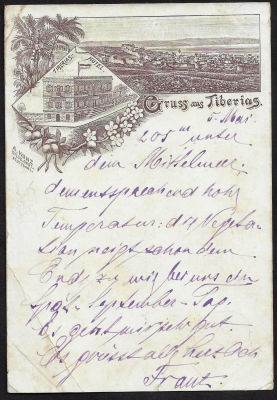 TIBERIAS HOTEL
Gruss aus Tiberias.
5. Mai
205 m unter
dem Mittelmeer.
dementsprechend hohe
Temperatur: die Vegeta-
tion neigt schon dem
Ende zu wie bei uns im
spät-September-Tag.
Es geht mir sehr gut.
Es grüsst alle herzlich
Franz.